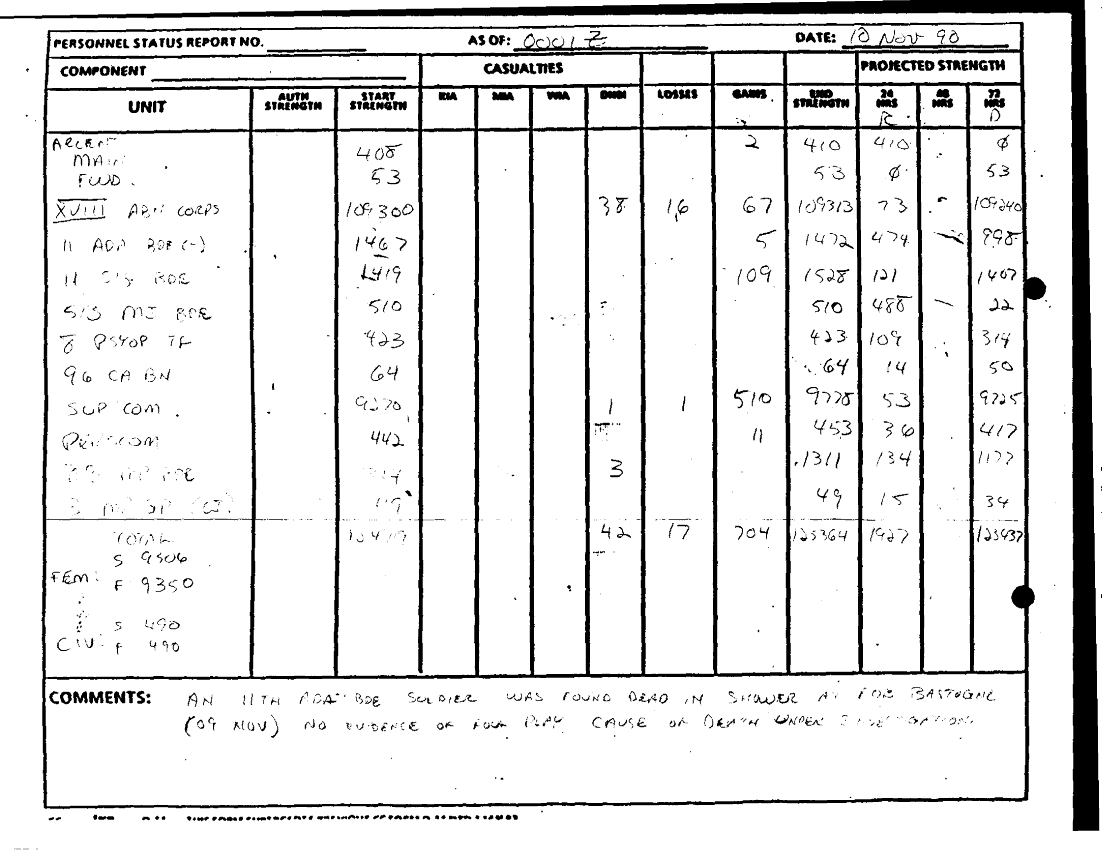 PERSONNEL STATUS REPORT NO. AS OF: 0001 Z DATE: 10 NOV 90
COMPONENT CASUALTIES PROJECTED STRENGTH
UNIT AUTH STRENGTH START STRENGTH KIA MIA WIA DNBI LOSSES GAINS END STRENGTH 24 HRS 48 HRS 72 HRS
R D
ARCENT
MAIN 408 2 410 410 Ø
FWD. 53 53 Ø 53
XVIII ABN CORPS 109300 38 16 67 109313 73 109240
11 ADA BDE (-) 1467 5 1472 474 — 998
11 SIG BDE 1419 109 1528 121 1407
513 MI BDE 510 510 488 — 22
8 PSYOP TF 423 423 109 314
96 CA BN 64 64 14 50
SUP COM. 9270 1 1 510 9778 53 9725
PERSCOM 442 11 453 36 417
BDE 3 1311 134 1177
49 15 34
TOTAL 42 17 704 125364 1927 123437
S 9506
FEM: F 9350
S 490
CIV: F 490
COMMENTS: AN 11TH ADA BDE SOLDIER WAS FOUND DEAD IN SHOWER AT FOB BASTOGNE
(09 NOV) NO EVIDENCE OF FOUL PLAY CAUSE OF DEATH UNDER INVESTIGATION.